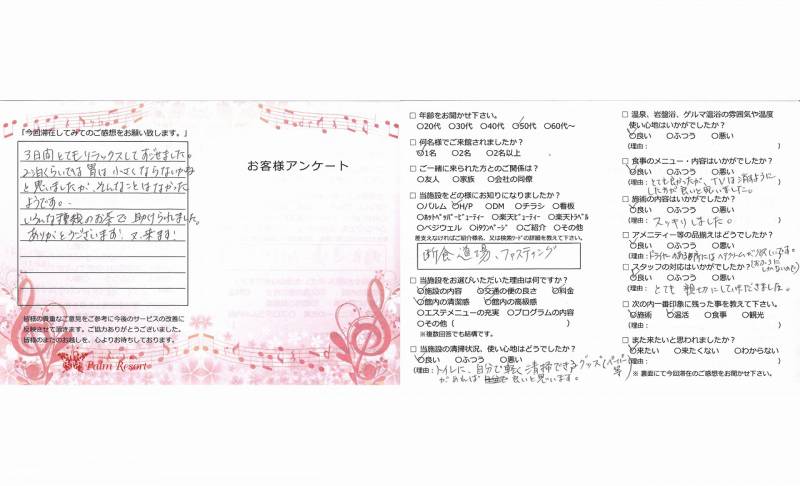 「今回滞在してみてのご感想をお願い致します。」
3日間とてもリラックスしてすごせました。
2泊くらいでは胃は小さくならないかな
と思いましたが、そんなことはなかった
ようです。
いろんな種類のお茶で助けられました。
ありがとうございます! 又、来ます!
皆様の貴重なご意見をご参考に今後のサービスの改善に
反映させて頂きます。ご協力ありがとうございました。
皆様のまたのお越しを、心よりお待ちしております。
Palm Resort
お客様アンケート
□ 年齢をお聞かせ下さい。
○20代 ○30代 ○40代 ○50代 ○60代～
□ 何名様でご来館されましたか?
○1名 ○2名 ○2名以上
□ ご一緒に来られた方とのご関係は?
○友人 ○家族 ○会社の同僚
□ 当施設をどの様にお知りになりましたか?
○パルム ○H/P ○DM ○チラシ ○看板
○ホットペッパービューティー ○楽天ビューティー ○楽天トラベル
○ベジウェル ○iタウンページ ○ご紹介 ○その他
差支えなければご紹介様名、又は検索ワードの詳細を教えて下さい。
断食道場、ファスティング
□ 当施設をお選びいただいた理由は何ですか?
○施設の内容 ○交通の便の良さ ○料金
○館内の清潔感 ○館内の高級感
○エステメニューの充実 ○プログラムの内容
○その他 ( )
※複数回答でも結構です。
□ 当施設の清掃状況、使い心地はどうでしたか?
○良い ○ふつう ○悪い
(理由: トイレに、自分で軽く清掃できるグッズ(ペーパー等)
があれば 良いと思います。
□ 温泉、岩盤浴、ゲルマ温浴の雰囲気や温度
使い心地はいかがでしたか?
○良い ○ふつう ○悪い
(理由: )
□ 食事のメニュー・内容はいかがでしたか?
○良い ○ふつう ○悪い
(理由: とても良かったが、TVは消すように
した方が良いと思いました。
□ 施術の内容はいかがでしたか?
○良い ○ふつう ○悪い
(理由: スッキリしました。 )
□ アメニティー等の品揃えはどうでしたか?
○良い ○ふつう ○悪い
(理由: ドライヤーがある場所にはヘアクリームが欲しいです。
□ スタッフの対応はいかがでしたか?
○良い ○ふつう ○悪い
(理由: とても親切にしていただきました。
□ 次の内一番印象に残った事を教えて下さい。
○施術 ○温活 ○食事 ○観光
(理由: )
□ また来たいと思われましたか?
○来たい ○来たくない ○わからない
(理由: )
※ 裏面にて今回滞在のご感想をお聞かせ下さい。